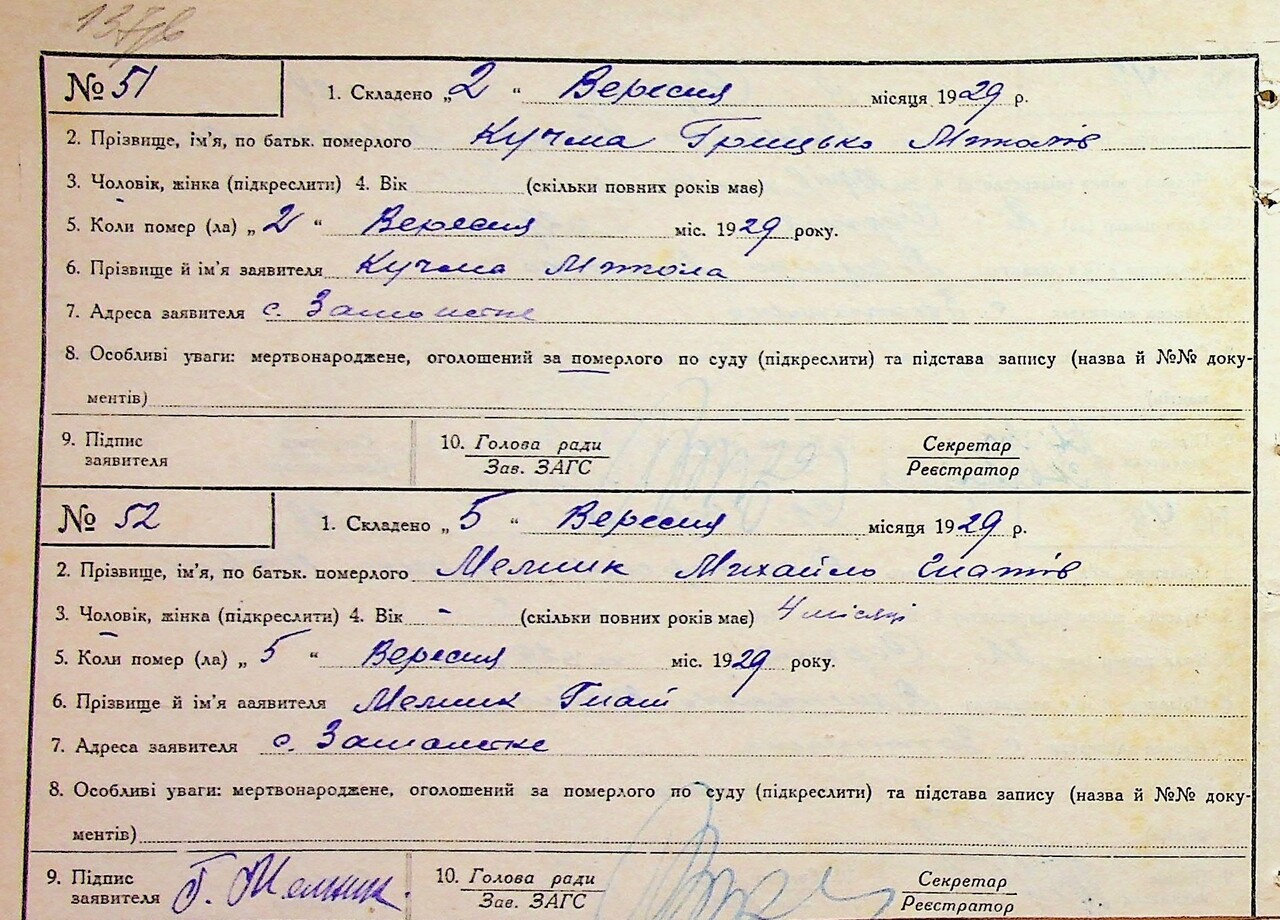 № 51
1. Складено „2“ Вересня місяця 1929 р.
2. Прізвище, ім'я, по батьк. померлого Кучма Грицько
3. Чоловік, жінка (підкреслити) 4. Вік (скільки повних років має)
5. Коли помер (ла) „2“ Вересня міс. 1929 року.
6. Прізвище й ім'я заявителя Кучма Микола
7. Адреса заявителя с.
8. Особливі уваги: мертвонароджене, оголошений за померлого по суду (підкреслити) та підстава запису (назва й №№ доку-
ментів)
9. Підпис заявителя 10. Голова ради Зав. ЗАГС Секретар Реєстратор
№ 52
1. Складено „5“ Вересня місяця 1929 р.
2. Прізвище, ім'я, по батьк. померлого Мельник Михайло Гнатів
3. Чоловік, жінка (підкреслити) 4. Вік - (скільки повних років має) 4 місяці
5. Коли помер (ла) „5“ Вересня міс. 1929 року.
6. Прізвище й ім'я заявителя Мельник Гнат
7. Адреса заявителя с.
8. Особливі уваги: мертвонароджене, оголошений за померлого по суду (підкреслити) та підстава запису (назва й №№ доку-
ментів)
9. Підпис заявителя Г. Мельник. 10. Голова ради Зав. ЗАГС Секретар Реєстратор